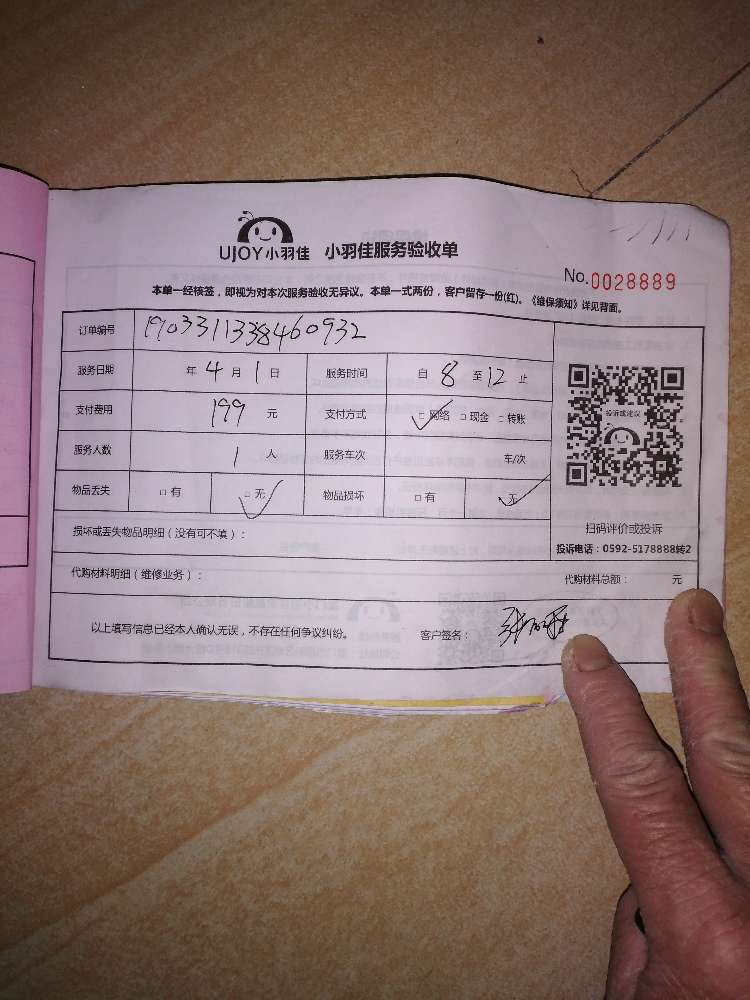 UJOY小羽佳 小羽佳服务验收单
No.0028889
本单一经核签，即视为对本次服务验收无异议。本单一式两份，客户留存一份(红)。《维保须知》详见背面。
订单编号 19033111338460932
服务日期 年 4 月 1 日 服务时间 自 8 至 12 止
支付费用 199 元 支付方式 □网络 □现金 □转账
服务人数 1 人 服务车次 车/次
物品丢失 □有 □无 物品损坏 □有 □无
投诉或建议
扫码评价或投诉
投诉电话：0592-5178888转2
损坏或丢失物品明细（没有可不填）：
代购材料明细（维修业务）： 代购材料总额： 元
以上填写信息已经本人确认无误，不存在任何争议纠纷。 客户签名：